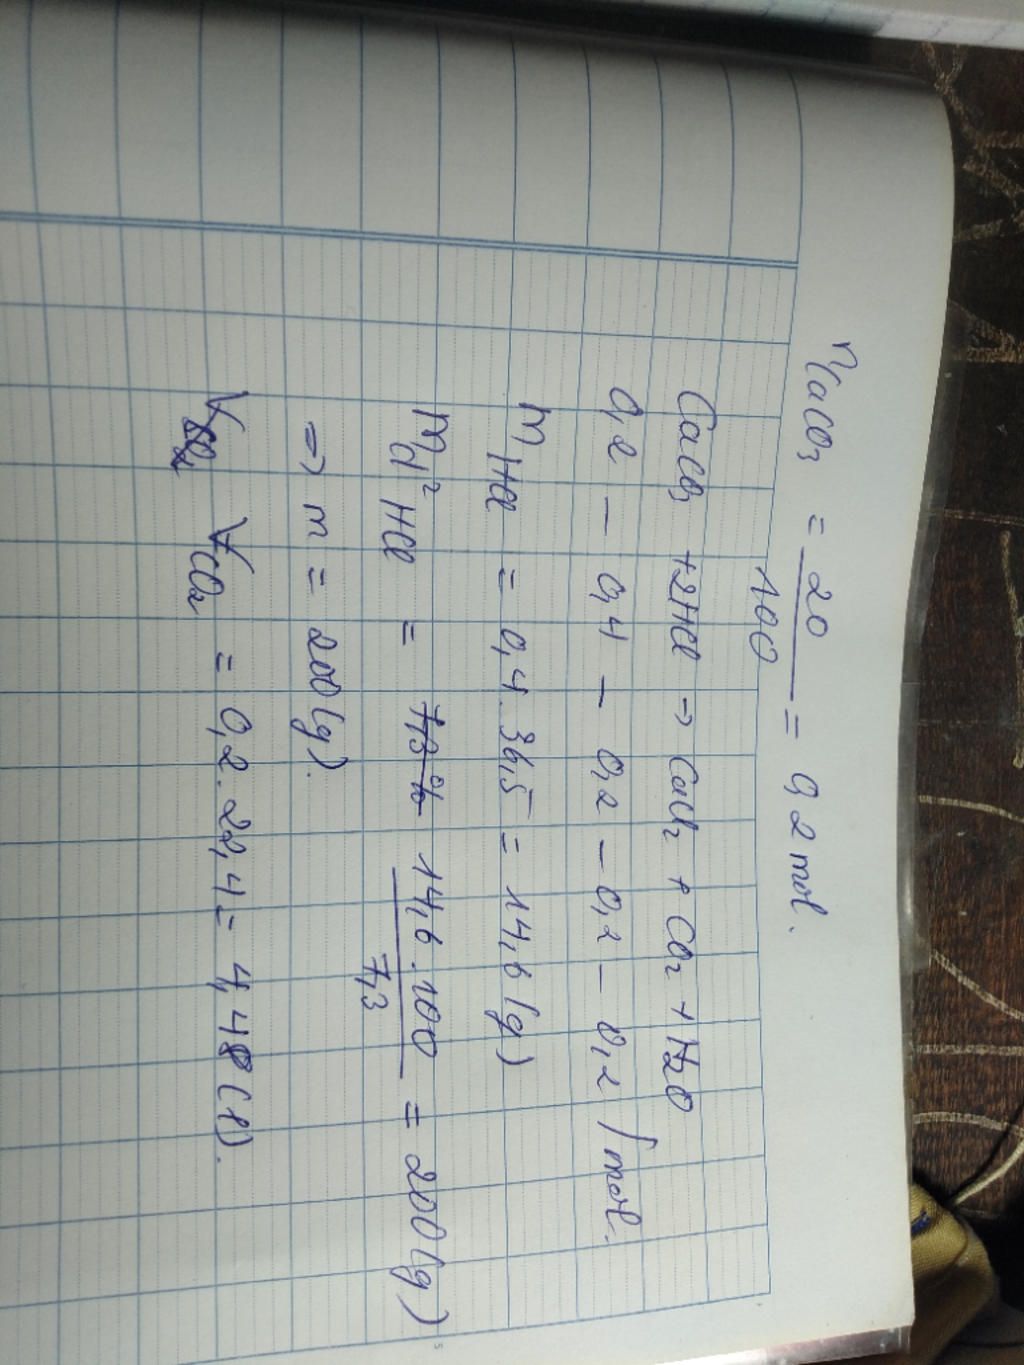 nCaCO3 = 20/100 = 0,2 mol.
CaCO3 + 2HCl → CaCl2 + CO2 + H2O
0,2 — 0,4 — 0,2 — 0,2 — 0,2 / mol.
mHCl = 0,4 . 36,5 = 14,6 (g)
md² HCl = 14,6 . 100 / 7,3 = 200 (g)
=> m = 200 (g).
VCO2 = 0,2 . 22,4 = 4,48 (l).